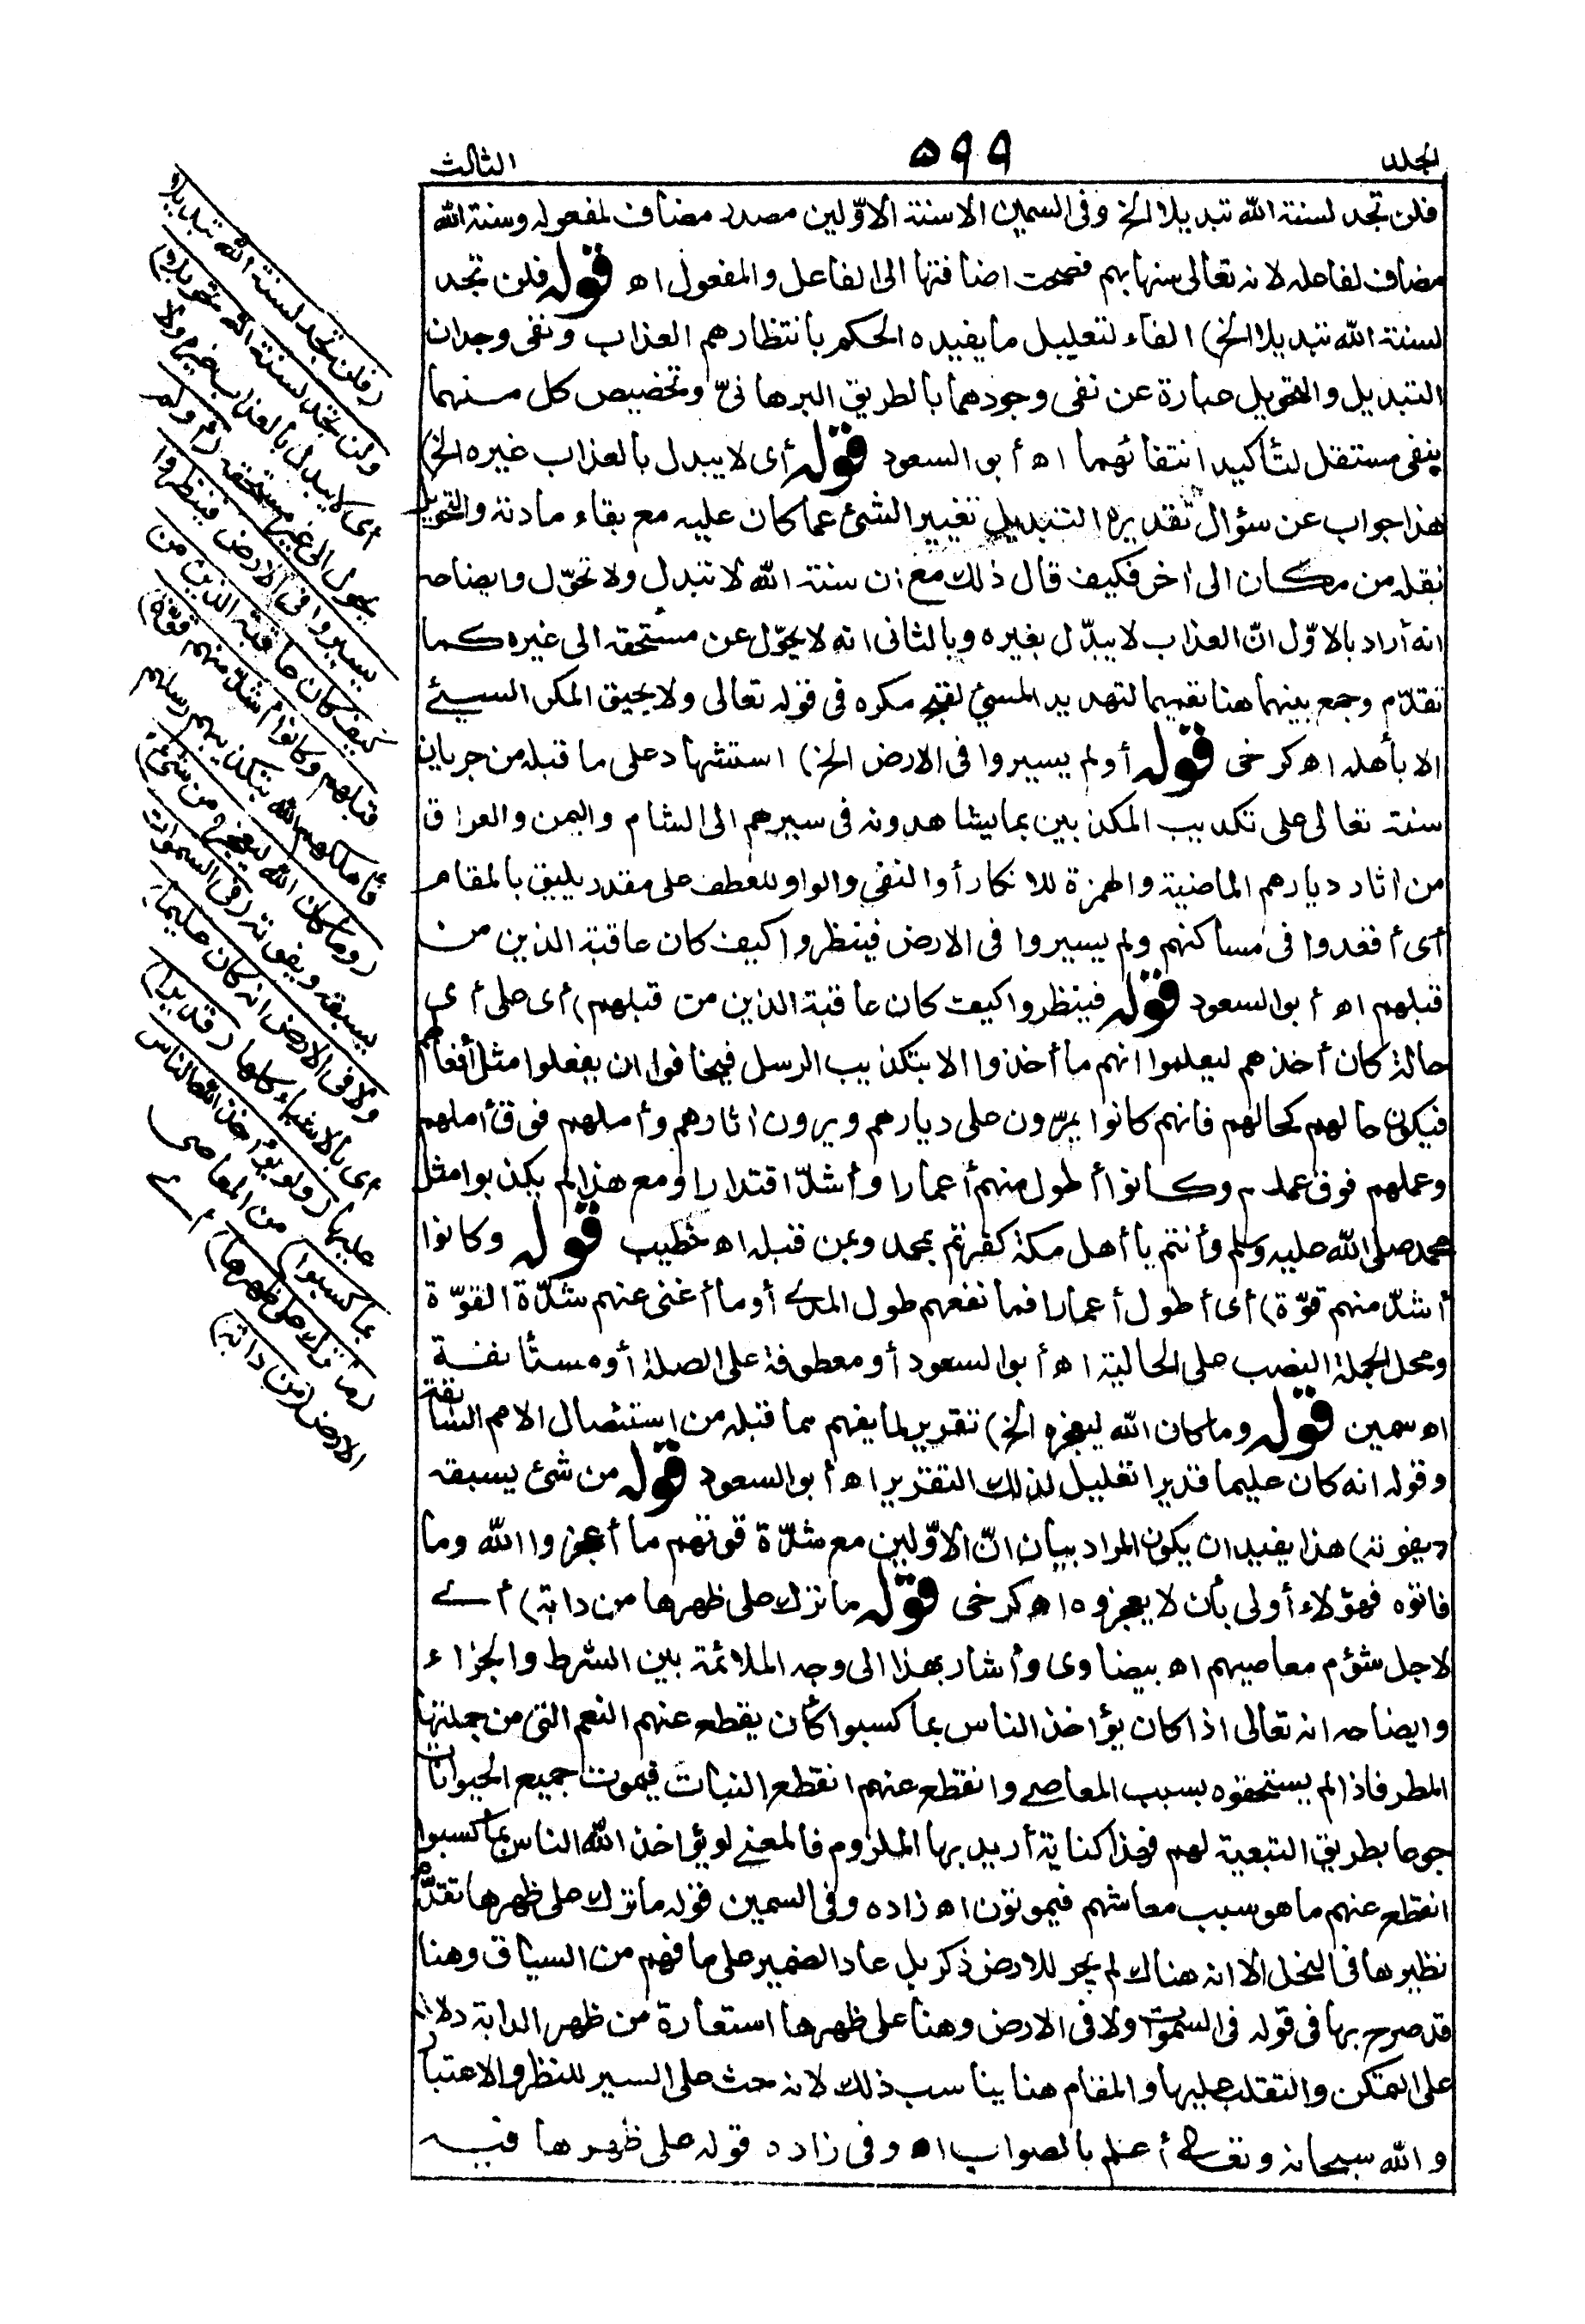 المجلد
٥٩٩
الثالث
فلن تجد لسنة الله تبديلا الخ وفى السمين الا سنة الاوّلين مصدر مضاف لمفعوله وسنة الله
مضاف لفاعله لانه تعالى سنها بهم فصحت اضافتها الى الفاعل والمفعول اه قوله فلن تجد
لسنة الله تبديلا الخ) الفاء لتعليل ما يفيده الحكم بانتظارهم العذاب ونفى وجدان
التبديل والتحويل عبارة عن نفى وجودهما بالطريق البرهانىّ وتخصيص كل منهما
بنفى مستقل لتأكيد انتفائهما اه أبو السعود قوله أى لا يبدل بالعذاب غيره الخ)
هذا جواب عن سؤال تقديره التبديل تغيير الشئ عما كان عليه مع بقاء مادته والتحويل
نقله من مكان الى اخر فكيف قال ذلك مع ان سنة الله لا تبدل ولا تحوّل وايضاحه
انه أراد بالاوّل انّ العذاب لا يبدّل بغيره وبالثانى انه لا يحوّل عن مستحقه الى غيره كما
تقدّم وجمع بينهما هنا تعميما لتهديد المسئ لقبح مكره فى قوله تعالى ولا يحيق المكر السيئ
الا بأهله اه كرخى قوله أولم يسيروا فى الارض الخ) استشهاد على ما قبله من جريان
سنة تعالى على تكذيب المكذبين بما يشاهدونه فى سيرهم الى الشام واليمن والعراق
من اثار ديارهم الماضية والهمزة للانكار أو النفى والواو للعطف على مقدر يليق بالمقام
أى أقعدوا فى مساكنهم ولم يسيروا فى الارض فينظروا كيف كان عاقبة الذين من
قبلهم اه أبو السعود قوله فينظروا كيف كان عاقبة الذين من قبلهم) أى على أى
حالة كان أخذهم ليعلموا انهم ما أخذوا الا بتكذيب الرسل فيخافوا ان يفعلوا مثل أفعالهم
فيكون حالهم كحالهم فانهم كانوا يمرّون على ديارهم ويرون اثارهم وأملهم فوق أملهم
وعملهم فوق عملهم وكانوا أطول منهم أعمارا وأشدّ اقتدارا ومع هذا لم يكذبوا مثل
محمد صلى الله عليه وسلم وأنتم يا أهل مكة كفرتم بمحمد وبمن قبله اه خطيب قوله وكانوا
أشدّ منهم قوّة) أى أطول أعمارا فما نفعهم طول المدى أو ما أغنى عنهم شدّة القوّة
ومحل الجملة النصب على الحالية اه أبو السعود أو معطوفة على الصلة أو مستأنفة
اه سمين قوله وما كان الله ليعجزه الخ) تقرير لما يفهم مما قبله من استئصال الامم السابقة
وقوله انه كان عليما قديرا تعليل لذلك التقرير اه أبو السعود قوله من شئ يسبقه
ويفوته) هذا يفيد ان يكون المراد بيان انّ الاوّلين مع شدّة قوتهم ما أعجزوا الله وما
فاتوه فهؤلاء أولى بأن لا يعجزوه اه كرخى قوله ما ترك على ظهرها من دابة) أى
لاجل شؤم معاصيهم اه بيضاوى وأشار بهذا الى وجه الملائمة بين الشرط والجزاء
وايضاحه انه تعالى اذا كان يؤاخذ الناس بما كسبوا كأن يقطع عنهم النعم التى من جملتها
المطر فاذا لم يستحقوه بسبب المعاصى وانقطع عنهم انقطع النبات فيموت جميع الحيوانات
جوعا بطريق التبعية لهم فهذا كناية أريد بها الملزوم فالمعنى لو يؤاخذ الله الناس بما كسبوا
انقطع عنهم ما هو سبب معاشهم فيموتون اه زاده وفى السمين قوله ما ترك على ظهرها تقدّم
نظيرها فى النحل الا انه هناك لم يجر للارض ذكر بل عاد الضمير على ما فهم من السياق وهنا
قد صرح بها فى قوله فى السموات ولا فى الارض وهنا على ظهرها استعارة من ظهر الدابة دلالة
على التمكن والتقلب عليها والمقام هنا يناسب ذلك لانه حث على السير للنظر والاعتبار
والله سبحانه وتعالى أعلم بالصواب اه وفى زاده قوله على ظهرها فيه
(فلن تجد لسنة الله تبديلا
ولن تجد لسنة الله تحويلا)
أى لا يبدل بالعذاب غيره ولا
يحول الى غير مستحقه (أولم
يسيروا فى الارض فينظروا
كيف كان عاقبة الذين من
قبلهم وكانوا أشدّ منهم قوّة)
فأهلكهم الله بتكذيبهم رسلهم
(وما كان الله ليعجزه من شئ)
يسبقه ويفوته (فى السموات
ولا فى الارض انه كان عليما)
أى بالاشياء كلها (قديرا)
عليها (ولو يؤاخذ الله الناس
بما كسبوا) من المعاصى
(ما ترك على ظهرها) أى
الارض (من دابة)